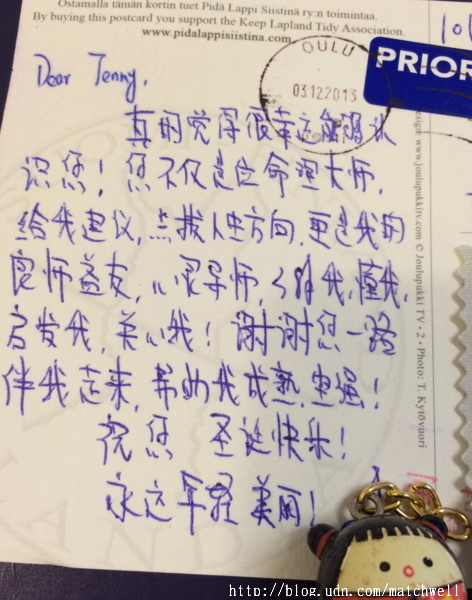 Ostamalla tämän kortin tuet Pidä Lappi Siistinä ry:n toimintaa.
By buying this postcard you support the Keep Lapland Tidy Association.
www.pidalappisiistina.com
OULU
03.12.2013
PRIOR
Dear Jenny,
真的觉得很幸运能够认
识您！您不仅是位命理大师，
给我建议，点拨人生方向，更是我的
良师益友，心灵导师，了解我，懂我，
启发我，关心我！谢谢您一路
伴我走来，帮助我成熟，坚强！
祝您 圣诞快乐！
永远年轻美丽！
www.joulupukkitv.com © Joulupukki TV • 2 • Photo: T. Kytövuori
http://blog.udn.com/matchwell